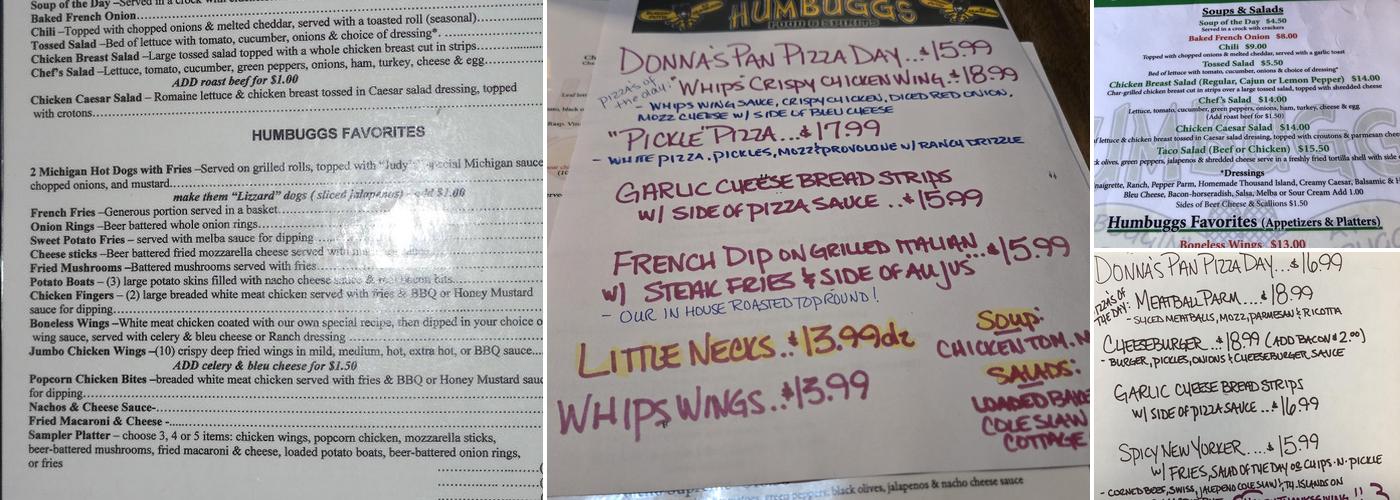 Soup of the Day –Served in a crock with crackers
Baked French Onion
Chili –Topped with chopped onions & melted cheddar, served with a toasted roll (seasonal)
Tossed Salad –Bed of lettuce with tomato, cucumber, onions & choice of dressing*
Chicken Breast Salad –Large tossed salad topped with a whole chicken breast cut in strips
Chef's Salad –Lettuce, tomato, cucumber, green peppers, onions, ham, turkey, cheese & egg
ADD roast beef for $1.00
Chicken Caesar Salad – Romaine lettuce & chicken breast tossed in Caesar salad dressing, topped
with crotons
HUMBUGGS FAVORITES
2 Michigan Hot Dogs with Fries –Served on grilled rolls, topped with "Judy's" special Michigan sauce
chopped onions, and mustard
make them "Lizzard" dogs ( sliced jalapenos) - add $1.00
French Fries –Generous portion served in a basket
Onion Rings –Beer battered whole onion rings
Sweet Potato Fries – served with melba sauce for dipping
Cheese sticks –Beer battered fried mozzarella cheese served with
Fried Mushrooms –Battered mushrooms served with fries
Potato Boats – (3) large potato skins filled with nacho cheese sauce & real bacon bits
Chicken Fingers – (2) large breaded white meat chicken served with fries & BBQ or Honey Mustard
sauce for dipping
Boneless Wings –White meat chicken coated with our own special recipe, then dipped in your choice o
wing sauce, served with celery & bleu cheese or Ranch dressing
Jumbo Chicken Wings –(10) crispy deep fried wings in mild, medium, hot, extra hot, or BBQ sauce
ADD celery & bleu cheese for $1.50
Popcorn Chicken Bites –breaded white meat chicken served with fries & BBQ or Honey Mustard sauc
for dipping
Nachos & Cheese Sauce-
Fried Macaroni & Cheese -
Sampler Platter – choose 3, 4 or 5 items: chicken wings, popcorn chicken, mozzarella sticks,
beer-battered mushrooms, fried macaroni & cheese, loaded potato boats, beer-battered onion rings,
or fries
HUMBUGGS
FOOD & SPIRITS
DONNA'S PAN PIZZA DAY...$15.99
PIZZA'S OF the day:
"WHIPS CRISPY CHICKEN WING.$18.99
- WHIPS WING SAUCE, CRISPY CHICKEN, DICED RED ONION,
MOZZ CHEESE W/ SIDE OF BLEU CHEESE
"PICKLE" PIZZA...$17.99
- WHITE PIZZA, PICKLES, MOZZ & PROVOLONE W/ RANCH DRIZZLE
GARLIC CHEESE BREAD STRIPS
W/ SIDE OF PIZZA SAUCE..$15.99
FRENCH DIP ON GRILLED ITALIAN...$15.99
W/ STEAK FRIES & SIDE OF AU JUS
- OUR IN HOUSE ROASTED TOP ROUND!
LITTLE NECKS..$13.99dz
WHIPS WINGS..$13.99
SOUP:
CHICKEN TOM. N
SALADS:
LOADED BAKE
COLE SLAW
COTTAGE
green peppers, black olives, jalapenos & nacho cheese sauce
Soups & Salads
Soup of the Day $4.50
Served in a crock with crackers
Baked French Onion $8.00
Chili $9.00
Topped with chopped onions & melted cheddar, served with a garlic toast
Tossed Salad $5.50
Bed of lettuce with tomato, cucumber, onions & choice of dressing*
Chicken Breast Salad (Regular, Cajun or Lemon Pepper) $14.00
Char-grilled chicken breast cut in strips over a large tossed salad, topped with shredded cheese
Chef's Salad $14.00
Lettuce, tomato, cucumber, green peppers, onions, ham, turkey, cheese & egg
(Add roast beef for $1.50)
Chicken Caesar Salad $14.00
lettuce & chicken breast tossed in Caesar salad dressing, topped with croutons & parmesan chees
Taco Salad (Beef or Chicken) $15.50
k olives, green peppers, jalapenos & shredded cheese serve in a freshly fried tortilla shell with side
*Dressings
naigrette, Ranch, Pepper Parm, Homemade Thousand Island, Creamy Caesar, Balsamic & I
Bleu Cheese, Bacon-horseradish, Salsa, Melba or Sour Cream Add 1.00
Sides of Beer Cheese & Scallions $1.50
Humbuggs Favorites (Appetizers & Platters)
Boneless Wings $13.00
DONNA'S PAN PIZZA DAY...$16.99
ZZAS OF THE DAY:
MEATBALL PARM....$18.99
- SLICED MEATBALLS, MOZZ, PARMESAN & RICOTTA
CHEESEBURGER..$18.99 (ADD BACON $2.00)
- BURGER, PICKLES, ONIONS & CHEESEBURGER SAUCE
GARLIC CHEESE BREAD STRIPS
W/ SIDE OF PIZZA SAUCE...$16.99
SPICY NEW YORKER....$15.99
W/ FRIES, SALAD OF THE DAY OR CHIPS-N-PICKLE
- CORNED BEEF, SWISS, JALEPENO COLE SLAW & TH. ISLAND ON